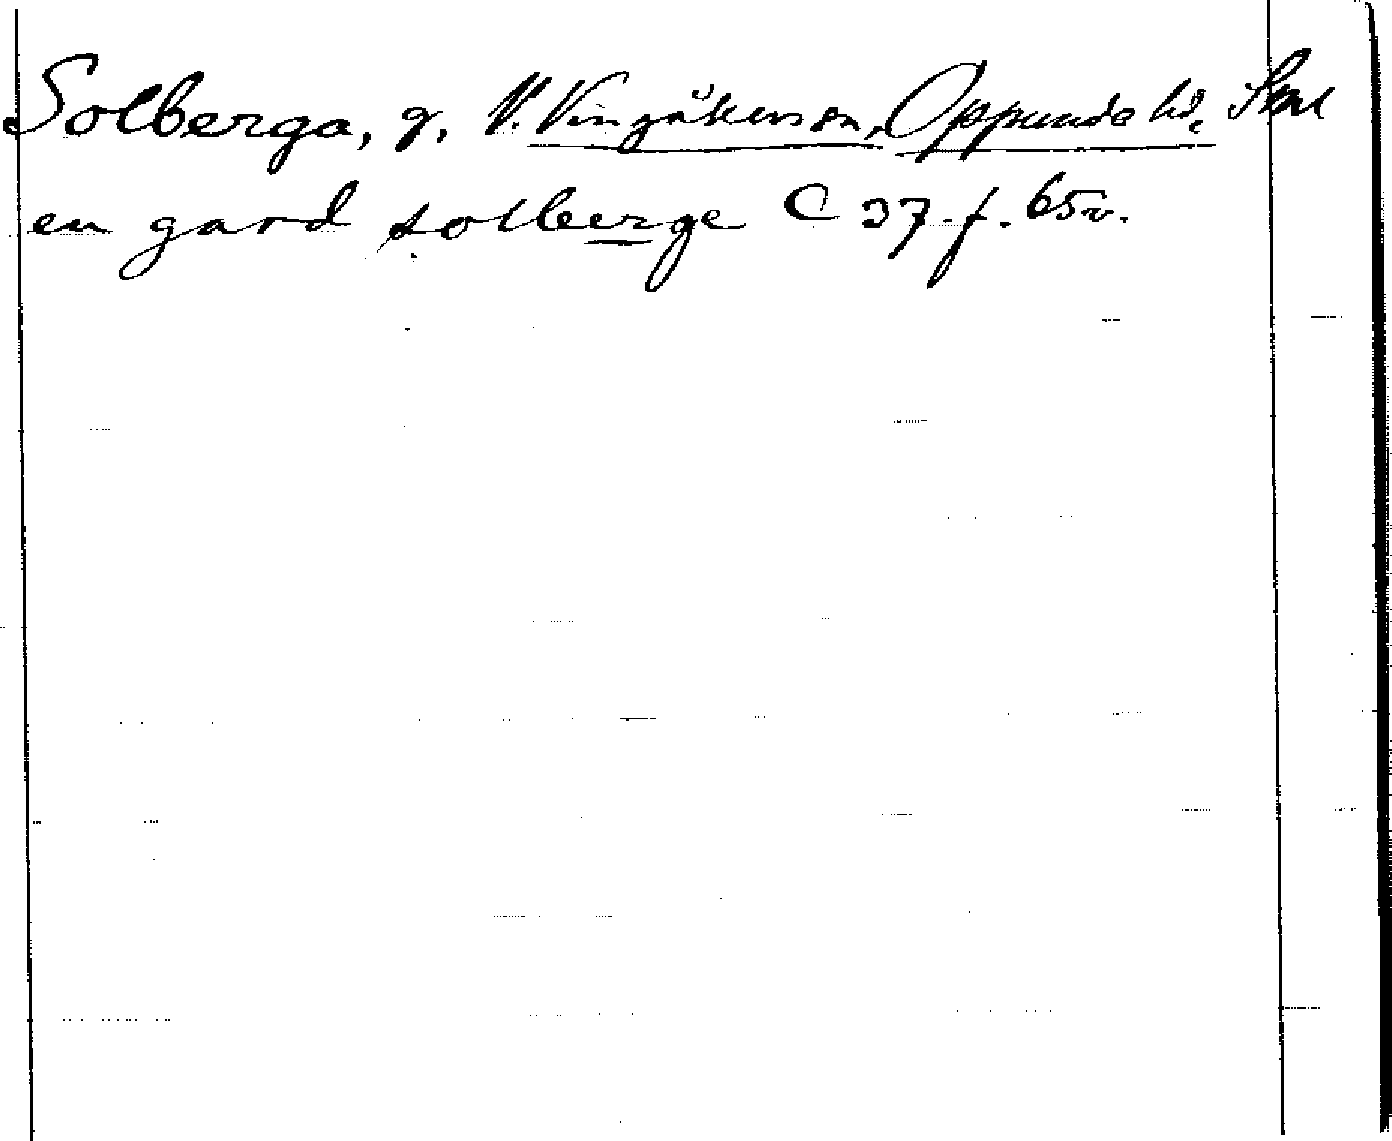 Solberga, g, V. Vingåkers sn, Oppunda hd, Söml
en gard solberge C 37 f. 65v.